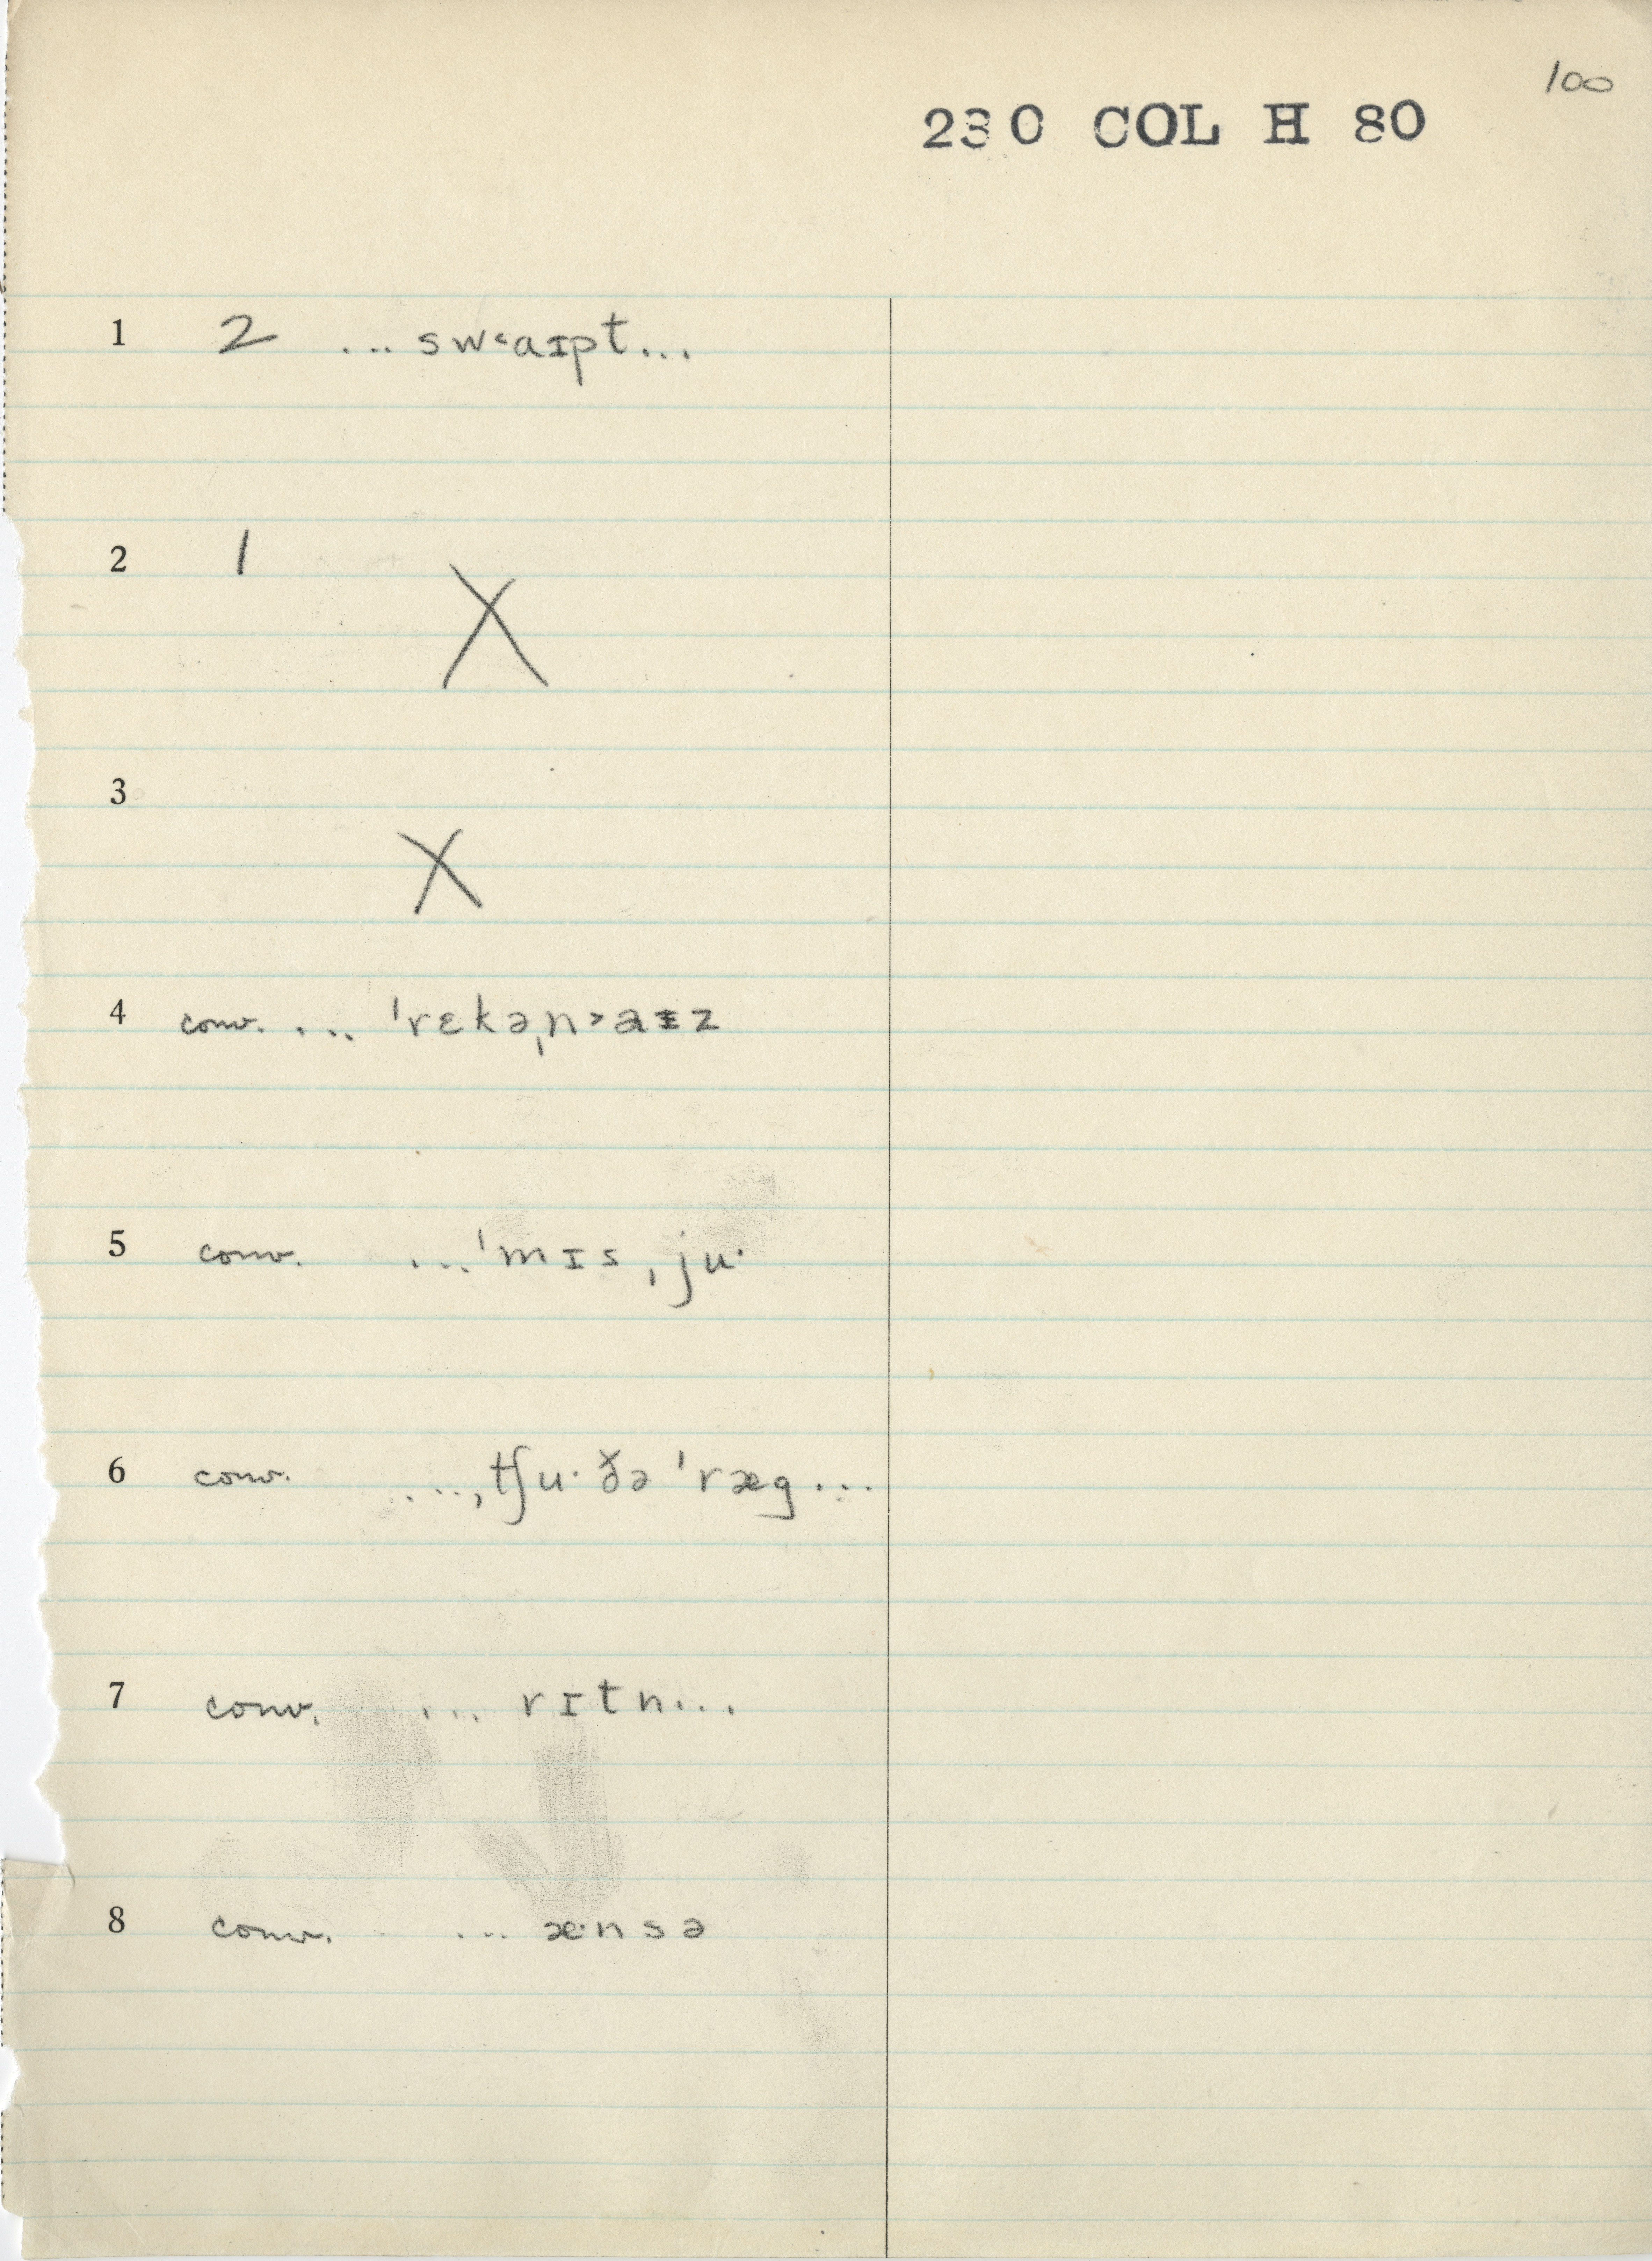 100
230 COL H 80
1 2 ...sw˂aɪpt...
2 1 X
3 X
4 conv. ... ˈrɛkəˌn˃aɪz
5 conv. ...ˈmɪsˌju·
6 conv. ...ˌtʃu·ðə ˈræg...
7 conv. ... rɪtn...
8 conv. ... æ·nsə